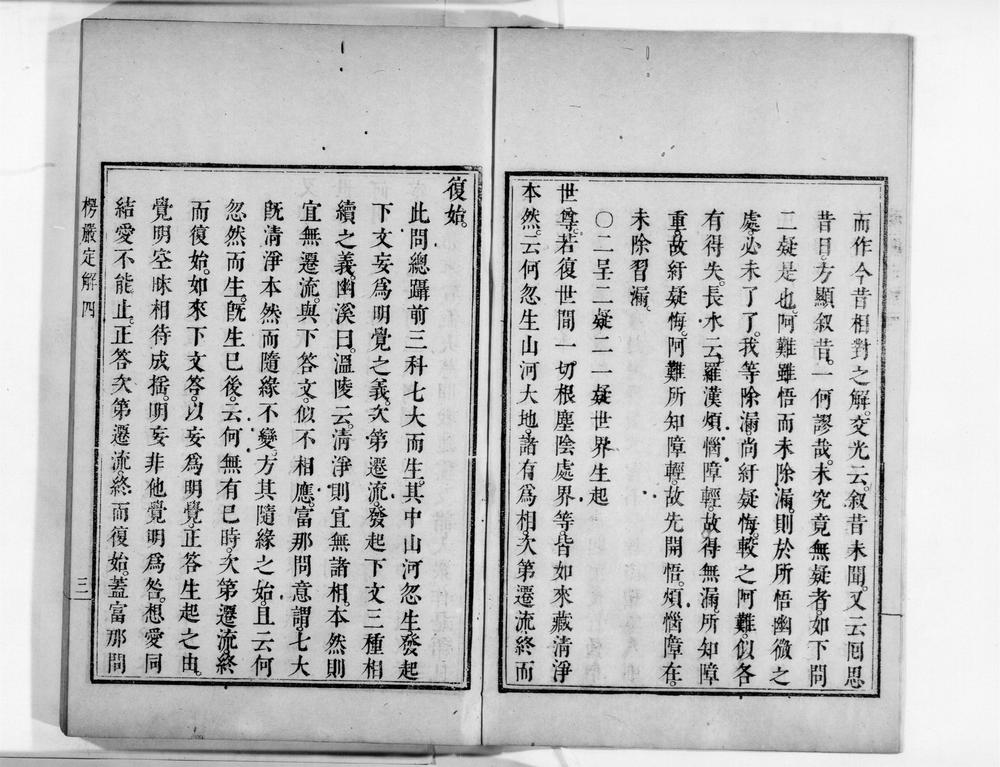 而作今昔相對之解。交光云。叙昔未聞。又云囘思
昔日。方顯叙昔。一何謬哉。未究竟無疑者。如下問
二疑是也。阿難雖悟而未除漏。則於所悟幽微之
處。必未了了。我等除漏尚紆疑悔。較之阿難。似各
有得失。長水云。羅漢煩惱障輕。故得無漏。所知障
重。故紆疑悔。阿難所知障輕。故先開悟。煩惱障在。
未除習漏。
〇二呈二疑二一疑世界生起
世尊。若復世間一切根塵陰處界等。皆如來藏清淨
本然。云何忽生山河大地。諸有爲相。次第遷流。終而
復始。
此問總躡前三科七大而生。其中山河忽生。發起
下文妄爲明覺之義。次第遷流。發起下文三種相
續之義。幽溪曰。溫陵云。清淨則宜無諸相。本然則
宜無遷流。與下答文。似不相應。富那問意謂七大
旣清淨本然而隨緣不變。方其隨緣之始。且云何
忽然而生。旣生已後。云何無有已時。次第遷流終
而復始。如來下文答。以妄爲明覺。正答生起之由。
覺明空昧相待成搖。明妄非他覺明爲咎。想愛同
結愛不能止。正答次第遷流。終而復始。蓋富那問
楞嚴定解四
三